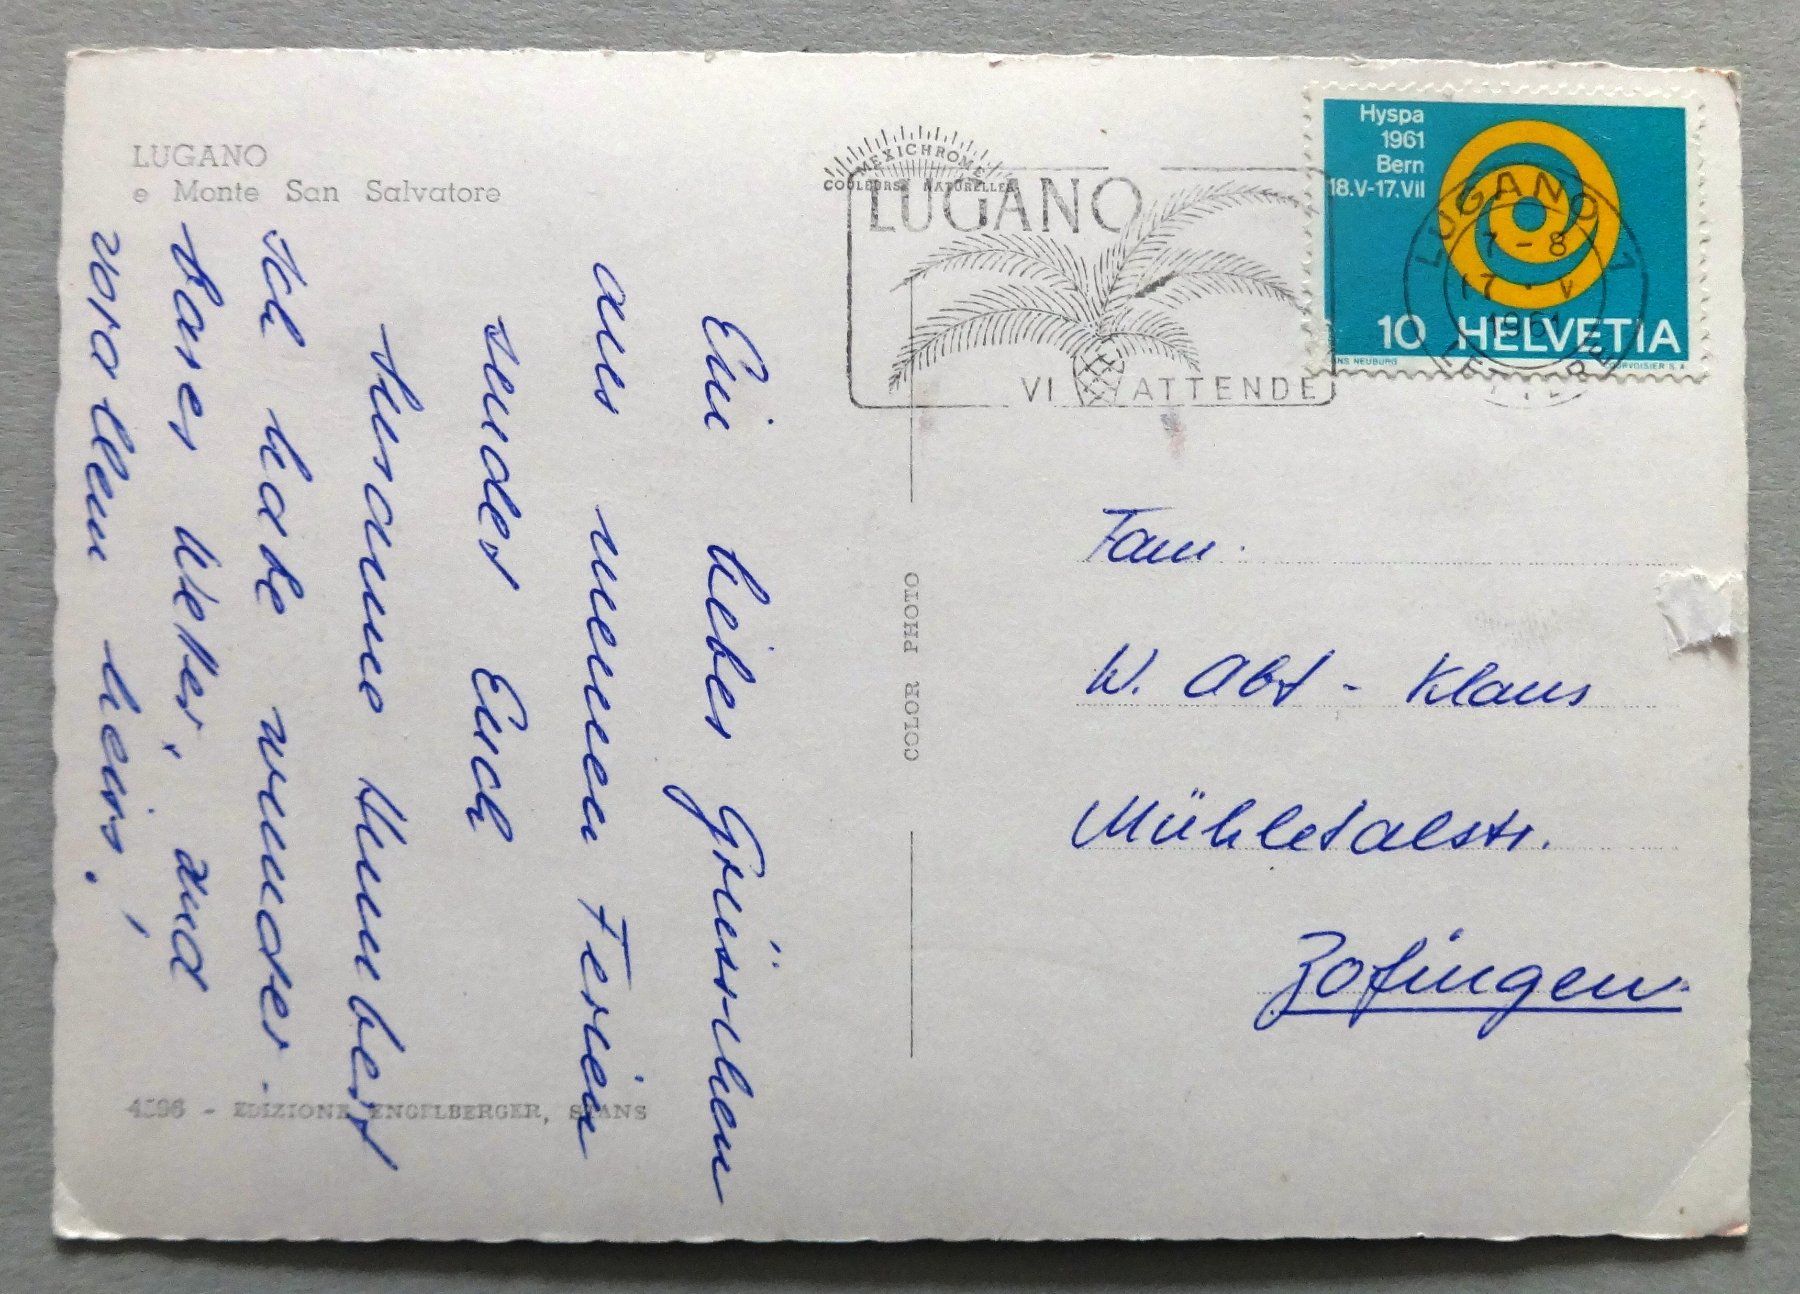 LUGANO
e Monte San Salvatore
MEXICHROME
COULEURS NATURELLES
LUGANO
VI ATTENDE
Hyspa
1961
Bern
18.V-17.VII
10 HELVETIA
HANS NEUBURG COURVOISIER S.A.
LUGANO 1
7-8
17. V
1961
LETTERE
Ein lieber Grüsschen
aus meinen Ferien
sendet Euch
Susanne Humbert
Ich habe wunder-
bares Wetter, und
vor allem heiss!
COLOR PHOTO
Fam.
W. Abt - Klaus
Mühletalstr.
Zofingen
4396 - EDIZIONE ENGELBERGER, STANS